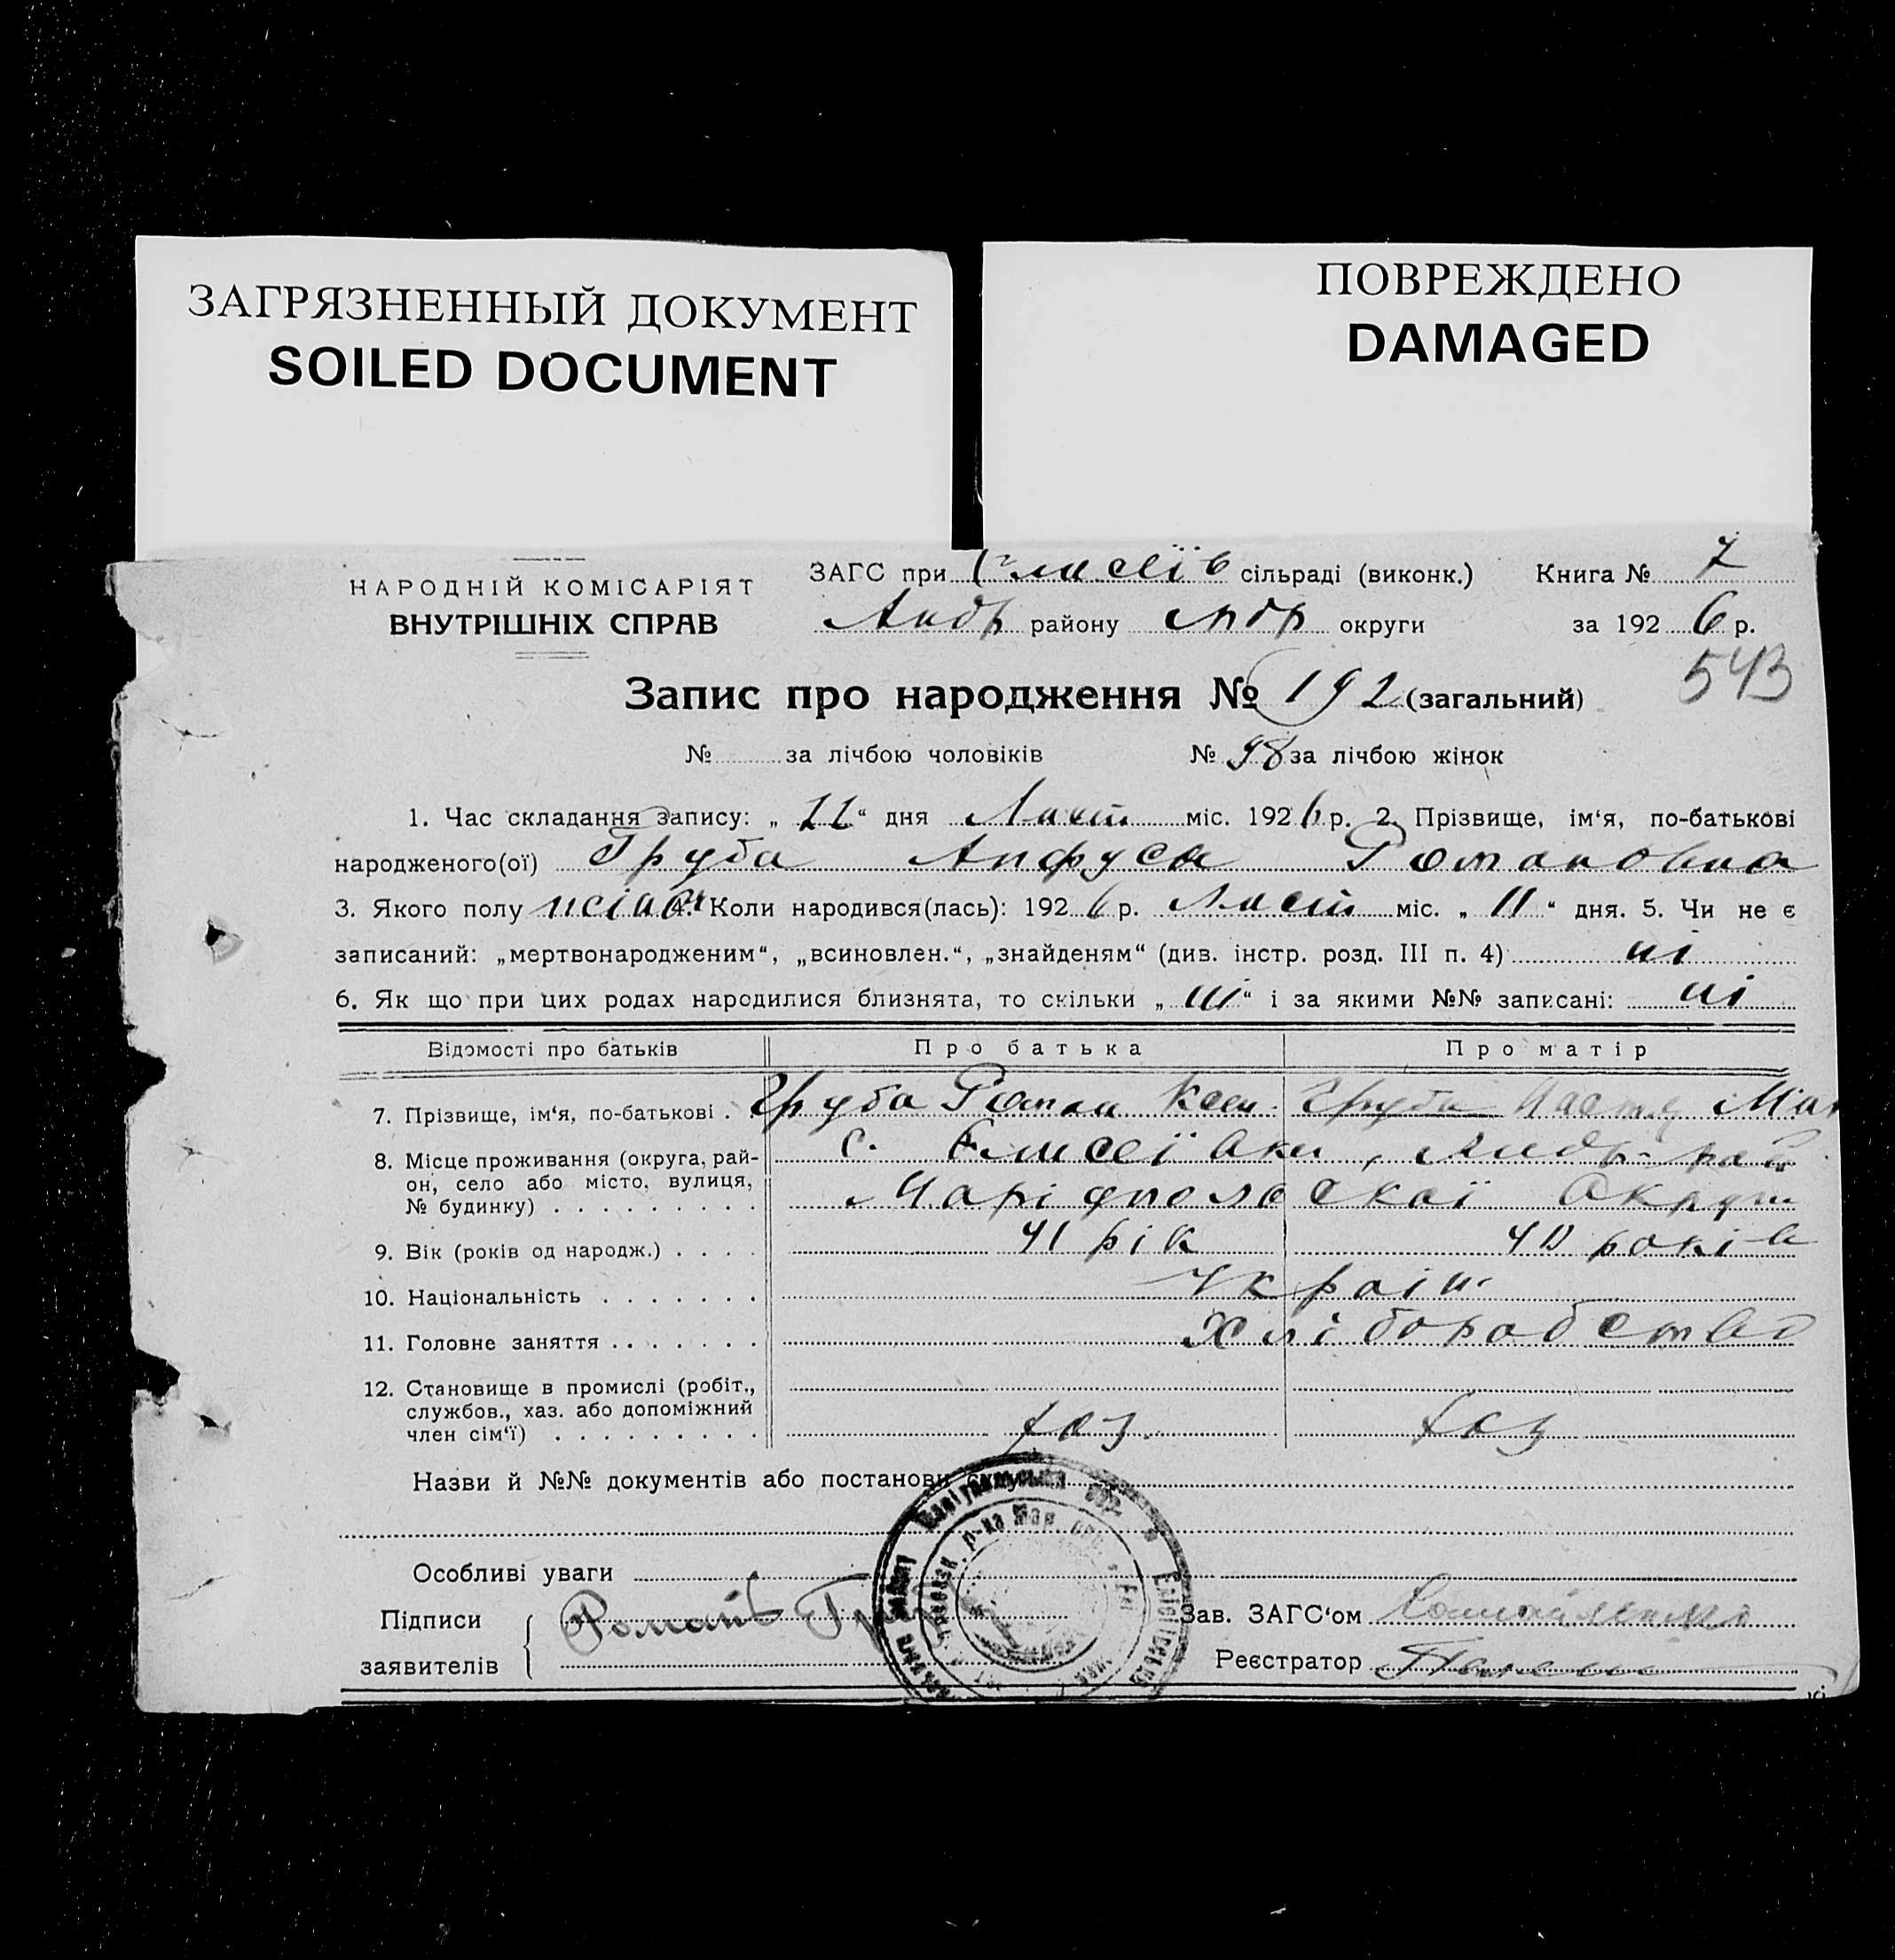 ЗАГРЯЗНЕННЫЙ ДОКУМЕНТ
SOILED DOCUMENT
ПОВРЕЖДЕНО
DAMAGED
НАРОДНІЙ КОМІСАРІЯТ
ВНУТРІШНІХ СПРАВ
ЗАГС при Єлисеїв сільраді (виконк.) Книга № 7
Андр району округи за 1926 р.
543
Запис про народження № 192 (загальний)
№ за лічбою чоловіків № 98 за лічбою жінок
1. Час складання запису: „ 22 “ дня Лист міс. 1926 р. 2. Прізвище, ім‘я, по-батькові
народженого(ої) Груба Анфуса Романовна
3. Якого полу 4. Коли народився(лась): 1926 р. Лист міс. „ 11 “ дня. 5. Чи не є
записаний: „мертвонародженим“, „всиновлен.“, „знайденям“ (див. інстр. розд. III п. 4) ні
6. Як що при цих родах народилися близнята, то скільки „ ні “ і за якими №№ записані: ні
Відомості про батьків Про батька Про матір
7. Прізвище, ім‘я, по-батькові . Груба Роман Груба Наст
8. Місце проживання (округа, рай-
он, село або місто, вулиця,
№ будинку) . . . . . . . . .
с. Єлисеївки, Андр. рай
Маріупольскої Округи
9. Вік (років од народж.) . . . . 41 рік 40 років
10. Національність . . . . . . . Україн.
11. Головне заняття . . . . . . . Хліборобство
12. Становище в промислі (робіт.,
службов., хаз. або допоміжний
член сім‘ї) . . . . . . . . .
хаз. хаз
Назви й №№ документів або постанови
Особливі уваги
Підписи
заявителів
Романъ
Зав. ЗАГС‘ом
Реєстратор